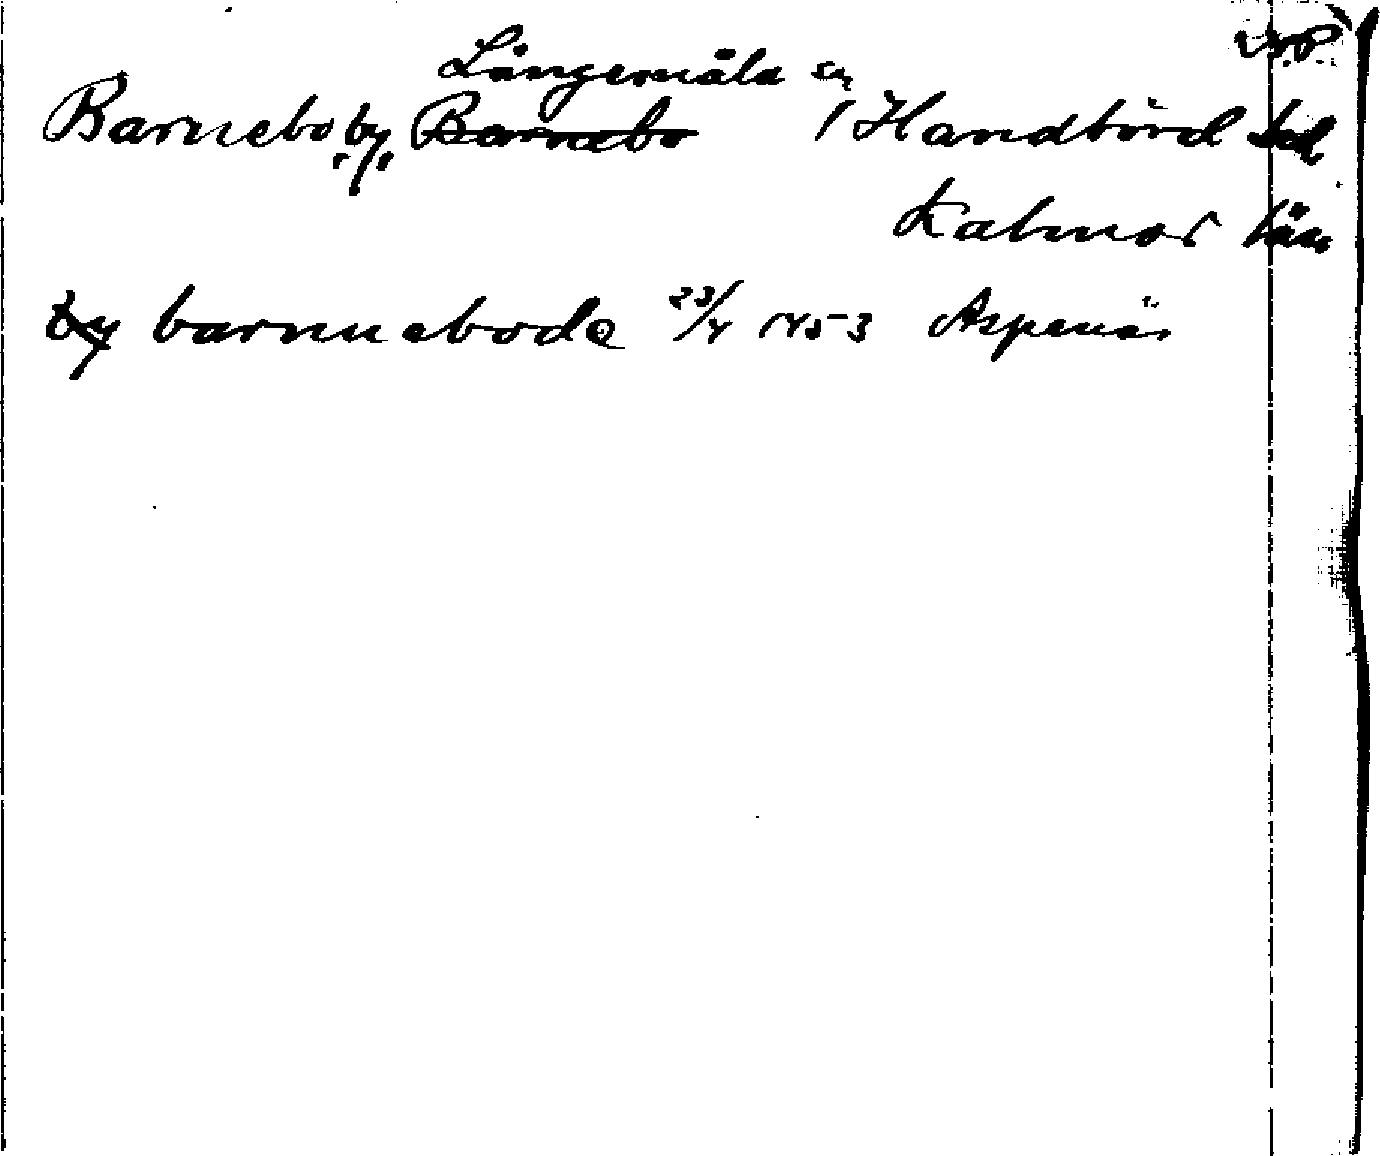 Långemåla sn
Barnebo by Barnebo / Handbörd hd
Kalmar län
by barnnebode 23/4 1453 Aspenäs